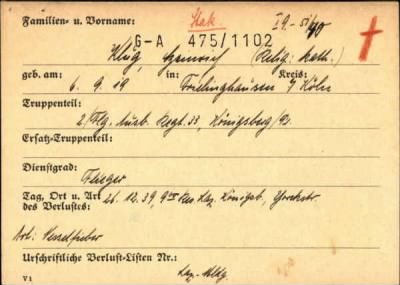 Familien- u. Vorname: Stak. I 9.-51/40
G-A 475/1102
Klug, Heinrich (Relig: kath.)
geb. am: in: Kreis:
6. 9. 19 Frielinghausen Köln
Truppenteil:
2/Flg. Ausb. Regt. 33, Königsberg/Pr.
Ersatz-Truppenteil:
Dienstgrad:
Flieger
Tag, Ort u. Art 26. 12. 39, Res. Laz. Königsb., Yorckstr.
des Verlustes:
Art:
Urschriftliche Verlust-Listen Nr.:
Laz. Mldg.
V 1